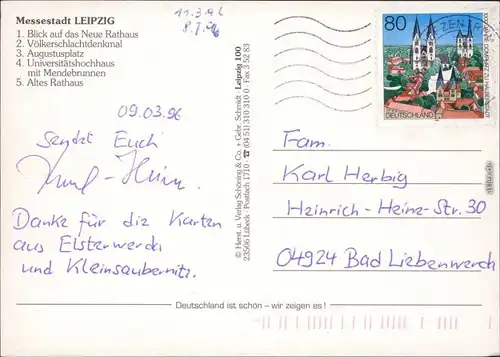 Messestadt LEIPZIG
1. Blick auf das Neue Rathaus
2. Völkerschlachtdenkmal
3. Augustusplatz
4. Universitätshochhaus
mit Mendebrunnen
5. Altes Rathaus
09.03.96
sendet Euch
Danke für die Karten
aus Elsterwerda
und Kleinsaubernitz.
© Herst. u. Verlag Schöning & Co. + Gebr. Schmidt · Leipzig 100
23506 Lübeck · Postfach 1710 · ☎ (04 51) 310 310 0 · Fax 3 52 83
80
DEUTSCHLAND
Fam.
Karl Herbig
Heinrich-Heine-Str. 30
04924 Bad Liebenwerda
Deutschland ist schön – wir zeigen es!